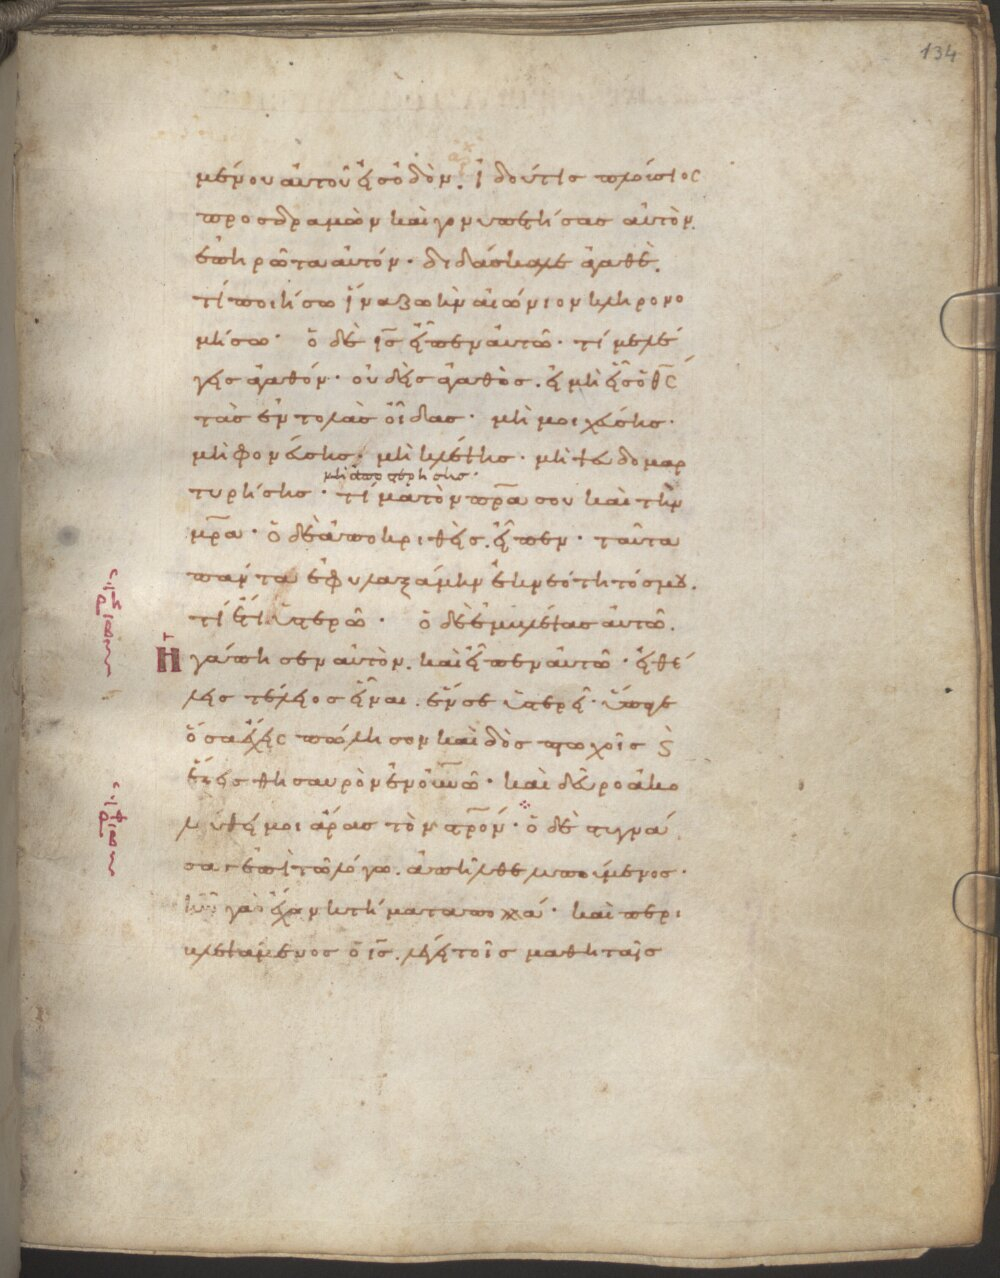 134
μένου αυτοῦ εἰσ ὁδὸν. ἰδού τις πλούσιος
προσδραμὼν καὶ γονυπετήσας αὐτὸν.
ἐπηρώτα αὐτόν· διδάσκαλε ἀγαθὲ.
τί ποιήσω ἵνα ζωὴν αἰώνιον κληρονο
μήσω· ὁ δὲ ις εἶπεν αὐτῶ· τί με λέ
γεις ἀγαθόν· οὐδεὶς ἀγαθὸς. εἰ μὴ εἷς ὁ θς
τὰς ἐντολὰς οἶδας· μὴ μοιχεύσης·
μὴ φονεύσης· μὴ κλέψης· μὴ ψευδομαρ
μὴ ἀποστερήσης·
τυρήσης· τίμα τὸν πρα σου καὶ τὴν
μρα· ὁ δὲ ἀποκριθεὶς. εἶπεν· ταῦτα
πάντα ἐφυλαξάμην ἐκ νεότητός μου.
τί ἔτι ὑστερῶ· ὁ δὲ ἐμβλέψας αὐτῶ.
Ηγάπησεν αὐτὸν. καὶ εἶπεν αὐτῶ· εἰ θέ
λεις τέλειος εἶναι. ἕν σε ὑστερεῖ· ὕπαγε
ὅσα ἔχεις πώλησον καὶ δὸς πτωχοῖς ϛ
ἕξεις θησαυρὸν ἐν οὐνῶ· καὶ δεῦρο ἀκο
λούθει μοι ἄρας τὸν σρον· ὁ δὲ στυγνά
σας ἐπὶ τῶ λόγω. ἀπῆλθε λυπούμενος·
ἦν γὰρ ἔχων κτήματα πολλά· καὶ περι
βλεψάμενος ὁ ις. λέγει τοῖς μαθηταῖς